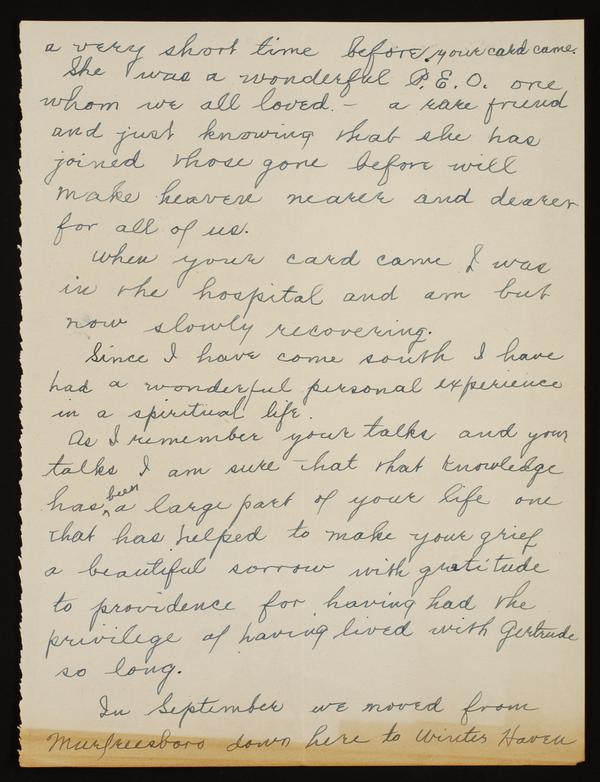 a very short time before your card came.
She was a wonderful P.E.O. one
whom we all loved. - a rare friend
and just knowing that she has
joined those gone before will
make heaven nearer and dearer
for all of us.
When your card came I was
in the hospital and am but
now slowly recovering.
Since I have come south I have
had a wonderful personal experience
in a spiritual life.
As I remember your talks and your
talks I am sure that that knowledge
has been a large part of your life one
that has helped to make your grief
a beautiful sorrow with gratitude
to providence for having had the
privilege of having lived with Gertrude
so long.
In September we moved from
Murfreesboro down here to Winter Haven